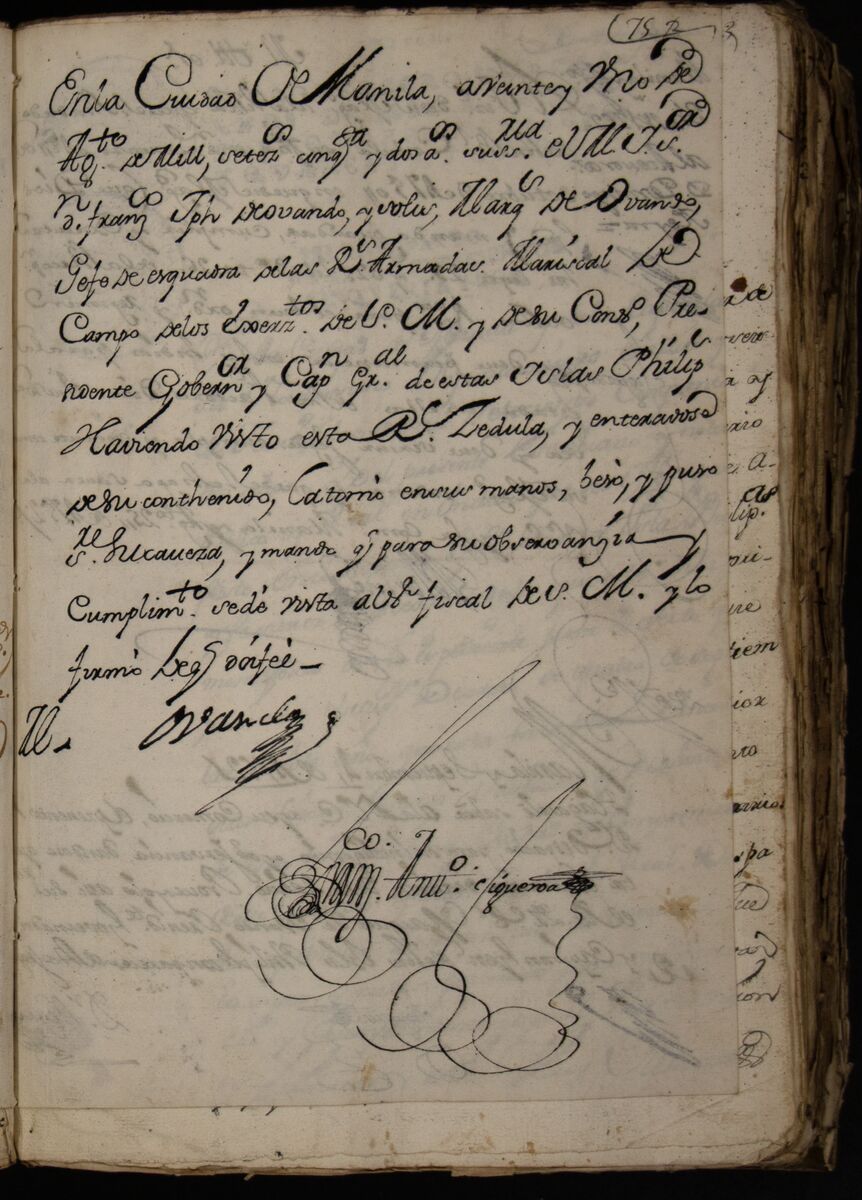 75
En la Ciudad De Manila, a veinte y Vno de
Ag.to de Mill, setez.s cinq.ta y dos a.s su ss.ria el M. Y. S.or
D.n Fran.co Jph de ovando, y solis, Marq.s De Ovando,
Gefe de esquadra de las R.s Armadas. Mariscal De
Campo de los Exerz.tos de S. M. y de su Cons.o, Pre-
sidente Gobern.or y Cap.n Gr.al de estas Yslas Philip.s
Haviendo visto esta R.l Zedula, y enterados
de su conthenido, la tomò en sus manos, besò, y puso
s.re su caveza, y mandò q.e para su observanzia y
Cumplim.to se dè vista al S.r fiscal de S. M. y lo
firmò de q.e doi feè
M.
Ovando
Co.
Juan. Anu.o figueroa